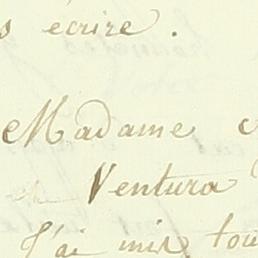 s écrire.
Madame
Ventura
J'ai mis tou